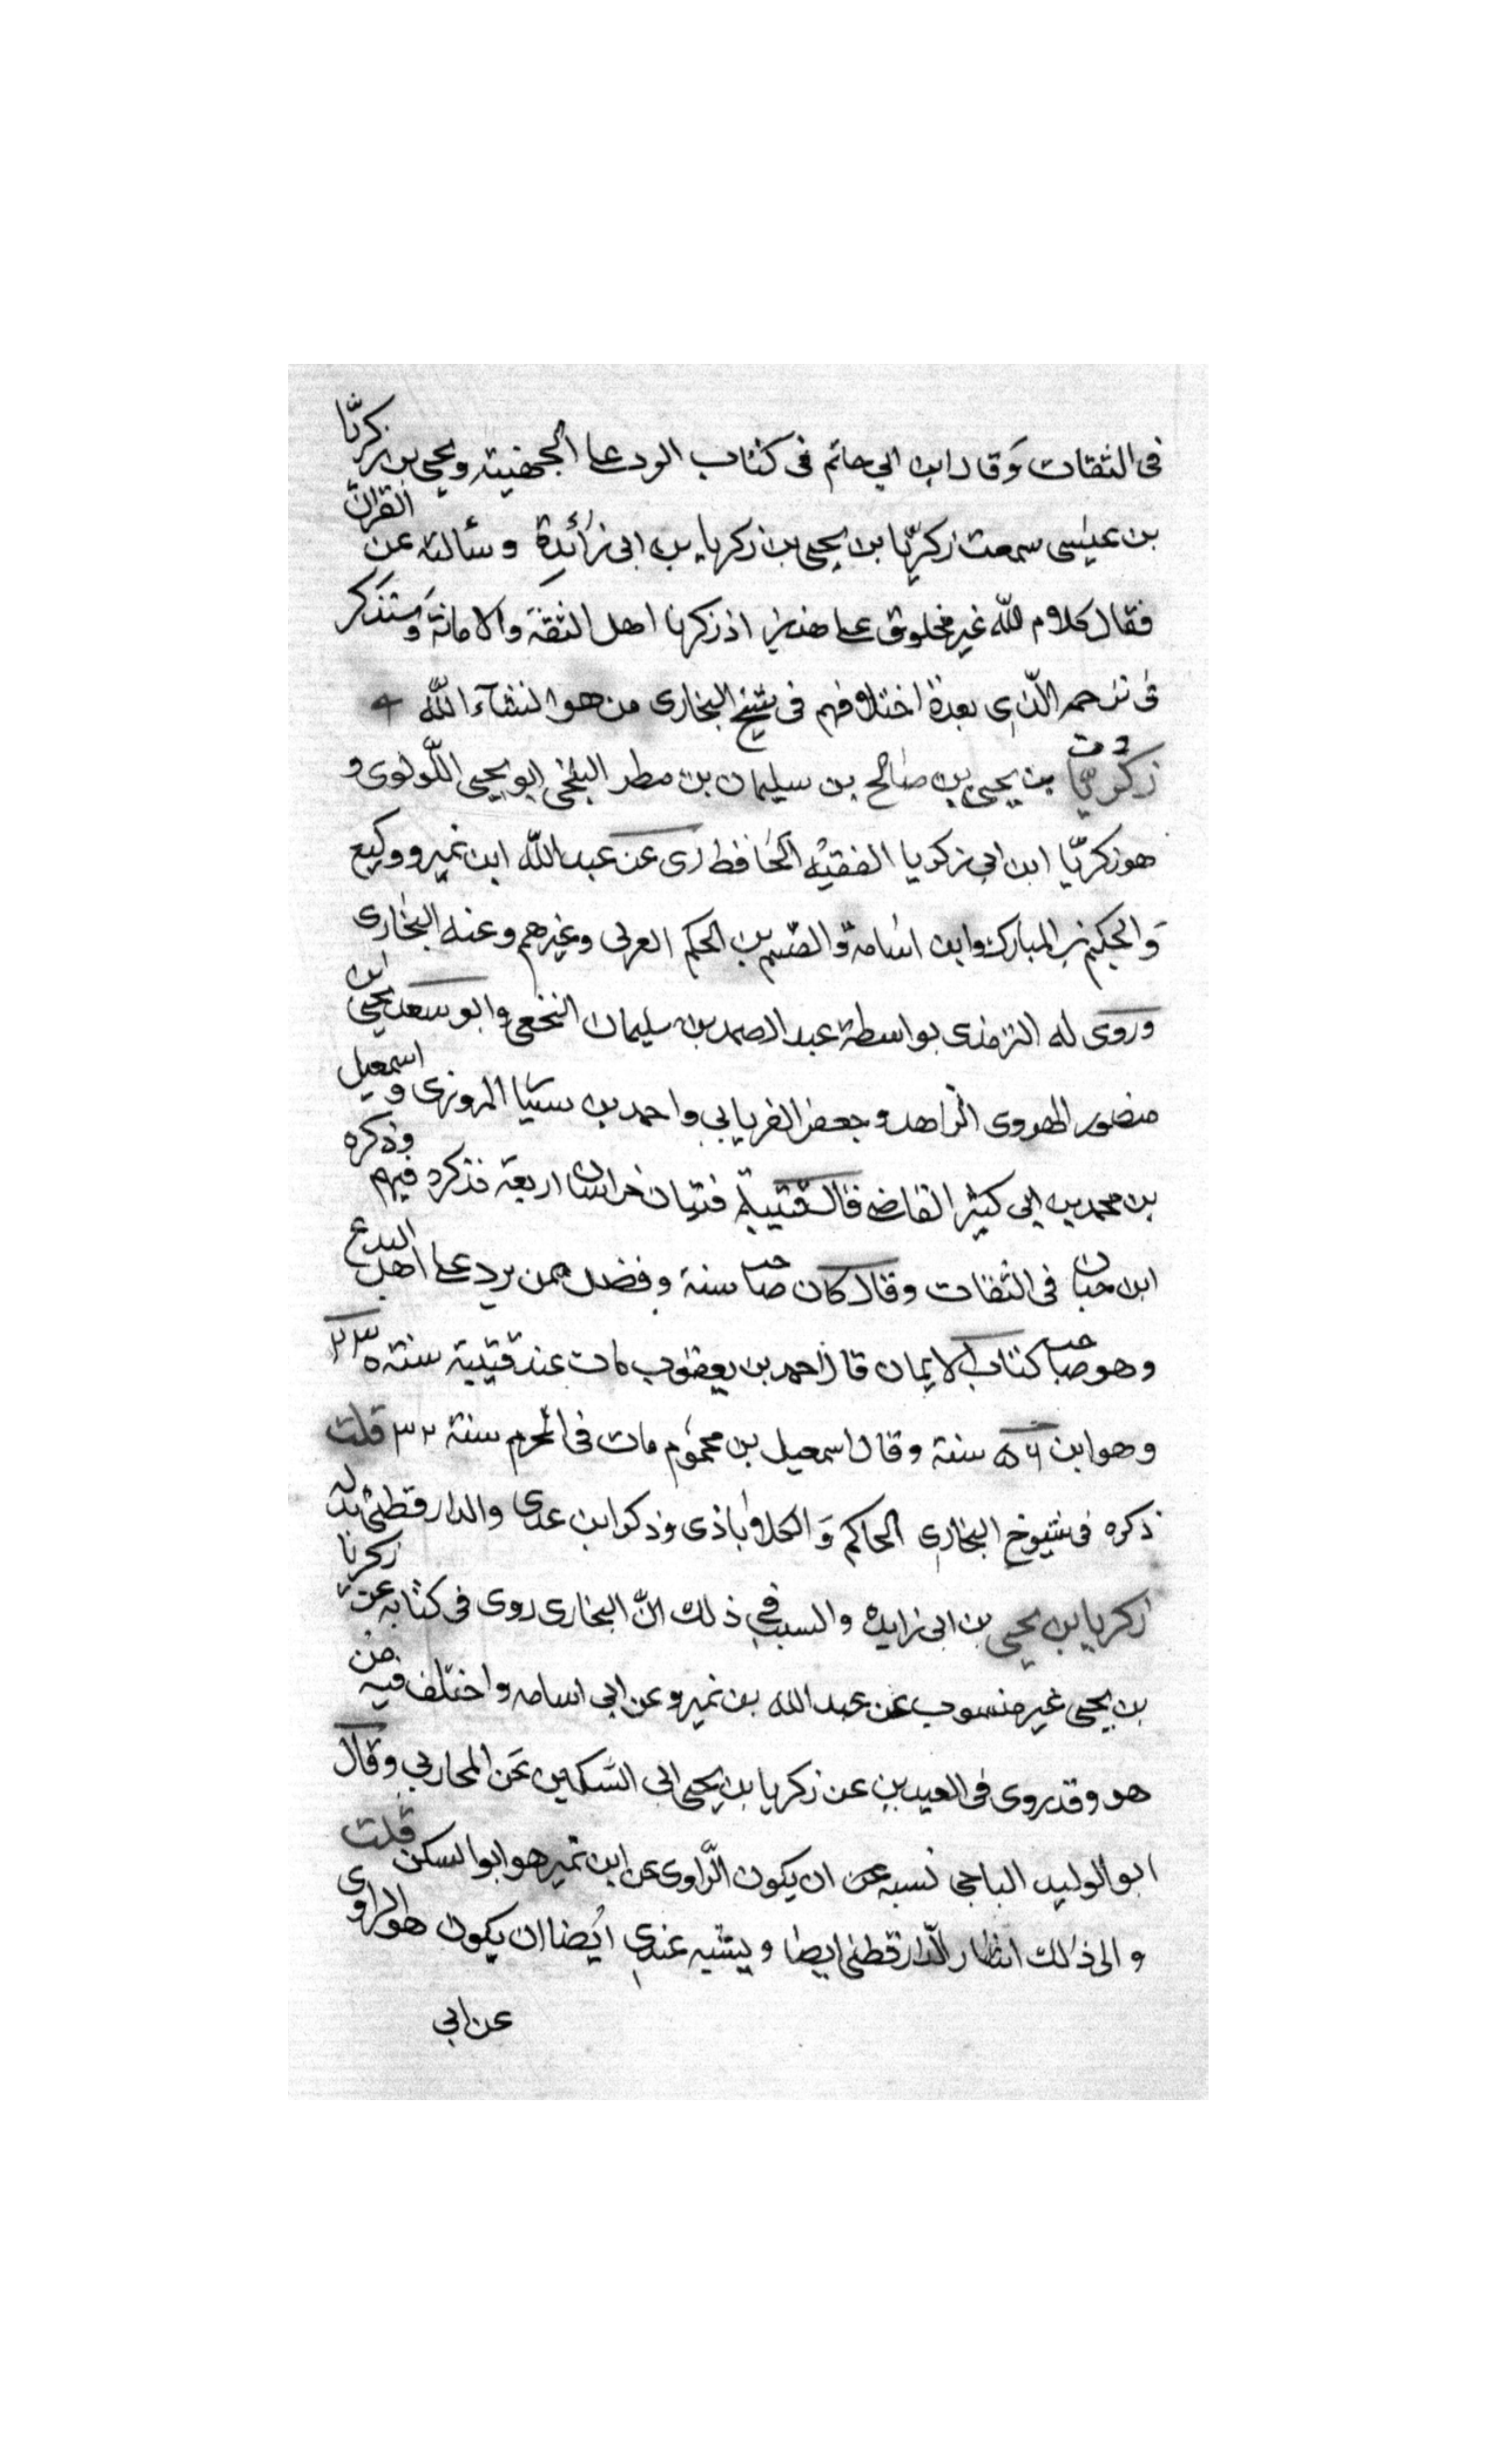 فى الثقات وَقال ابن ابي حاتم فى كتاب الرد على الجهمية ويحيى بن زكريّا
بن عيسى سمعت زكريّا بن يحيى بن زكريا بن ابى زائدة وسألته عن القرآن
فقال كلام الله غير مخلوق على هذين اذ ذكرنا اهل الثقة وَالامانة وَستذكر
فى ترجمه الّذى بعدة اختلافهم فى شيخ البخارى من هو انشآء اللّٰه
خ ت
زكريّا بن يحيى بن صالح بن سليمان بن مطر البلخى ابو يحيى اللّولوى و
هو زكريّا ابن ابى زكريا الفقيه الحافظ روى عن عبد اللّٰه ابن نمير ووكيع
وَالحكيم بن المبارك وابن اسامة والقسم بن الحكم العرنى وغيرهم وعنه البخارى
وروى له الترمذى بواسطة عبد الصمد بن سليمان النخعى وابو سعد يحيى ابن
منصور الهروى الزاهد وجعفر الفريابي واحمد بن سيّا المروزى واسمعيل
بن محمد بن ابى كثير القاضى قال قتيبة فتيان خراسان اربعة فذكره فيهم وذكره
ابن حبان فى الثقات وقال كان صاحب سنة وفضل ممن يرد على اهل البدع
وهو صاحب كتاب الايمان قال احمد بن يعقوب مات عند قتيبة سنة ٢٣٠
وهو ابن ٥٦ سنة وقال اسمعيل بن محموم مات فى المحرم سنة ٣٢ قلت
ذكره فى شيوخ البخارى الحاكم وَالكلاباذى وذكر ابن عدى والدارقطنى بدله
زكريا بن يحيى بن ابى زايده والسبب فى ذلك انّ البخارى روى فى كتابه عن زكريا
بن يحيى غير منسوب عن عبد الله بن نمير وعن ابى اسامه واختلف فيه من
هو وقد روى فى العيدين عن زكريا بن يحيى ابى السّكين عن المحاربي وقال
ابو الوليد الباجى نسبه عن ان يكون الرّاوى عن ابن نمير هو ابو السكن قلت
والى ذلك اشار الدّارقطنى ايضا ويشبه عندى ايضا ان يكون هو الراوى
عن ابى